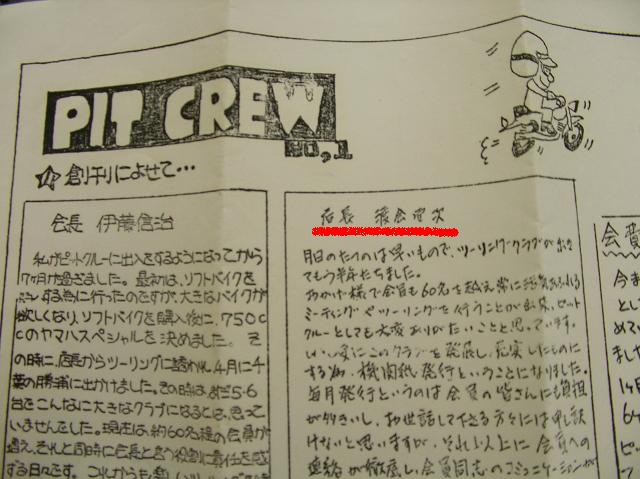 PIT CREW
NO,1
創刊によせて…
会長 伊藤信治
私がピットクルーに出入をするようになってから
7ヶ月が過ぎました。最初は、ソフトバイクを
する為に行ったのですが、大きなバイクが
欲しくなり、ソフトバイクを購入後に、750C
Cのヤマハスペシャルを決めました。そ
の時に、店長からツーリングに誘われ4月に千
葉の勝浦に出かけました。その時は、まだ5・6
台をこんなに大きなクラブになるとは、思って
いませんでした。現在は、約60名程の会員が
増え、それと同時に会長と言う役割に責任を感
ずる日々です。これからも
店長
月日のたつのは早いもので、ツーリングクラブが出来
てもう半年たちました。
おかげ様で会員も60名を越え常に活気あふれる
ミーティングやツーリングを行うことが出来、ピット
クルーとしても大変ありがたいことと思っています。
このクラブを発展し、充実したものに
する為、機関紙発行ということになりました。
毎月発行というのは会員の皆さんにも負担
が大きいし、お世話して下さる方々には申し訳
けないと思いますが、それ以上に会員への
連絡が徹底し、会員同志のコミュニケーションが
会費
今ま
として
めてい
ました
1ヶ月